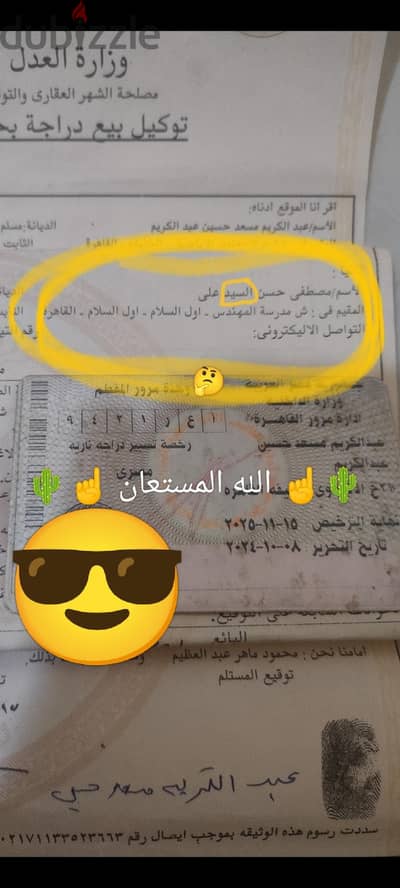 dubizzle
وزارة العدل
مصلحة الشهر العقارى والتو
توكيل بيع دراجة بخ
اقر انا الموقع ادناه:
الأسم/عبد الكريم مسعد حسين عبد الكريم
الديانة:مسلم
الثابت
القاهرة
الأسم/مصطفى حسن السيد على
المقيم فى : ش مدرسة المهندس - اول السلام - اول السلام - القاهرة
التواصل الاليكترونى:
وحدة مرور المقطم
وزارة الداخلية
ادارة مرور القاهرة
٩ ٤ ٢ ١ ر ع ١
عبدالكريم مسعد حسين
رخصة تسيير دراجه ناريه
عبدالكريم
مصرى
الله المستعان
نهاية الترخيص ١٥-١١-٢٠٢٥
تاريخ التحرير ٠٨-١٠-٢٠٢٤
على التوقيع.
البائع
امامنا نحن : محمود ماهر عبد العظيم
بذلك.
توقيع المستلم
عبد الكريم مسعد حسين
سددت رسوم هذه الوثيقه بموجب ايصال رقم ٠٢١٧١١٣٣٥٢٣٦٦٣